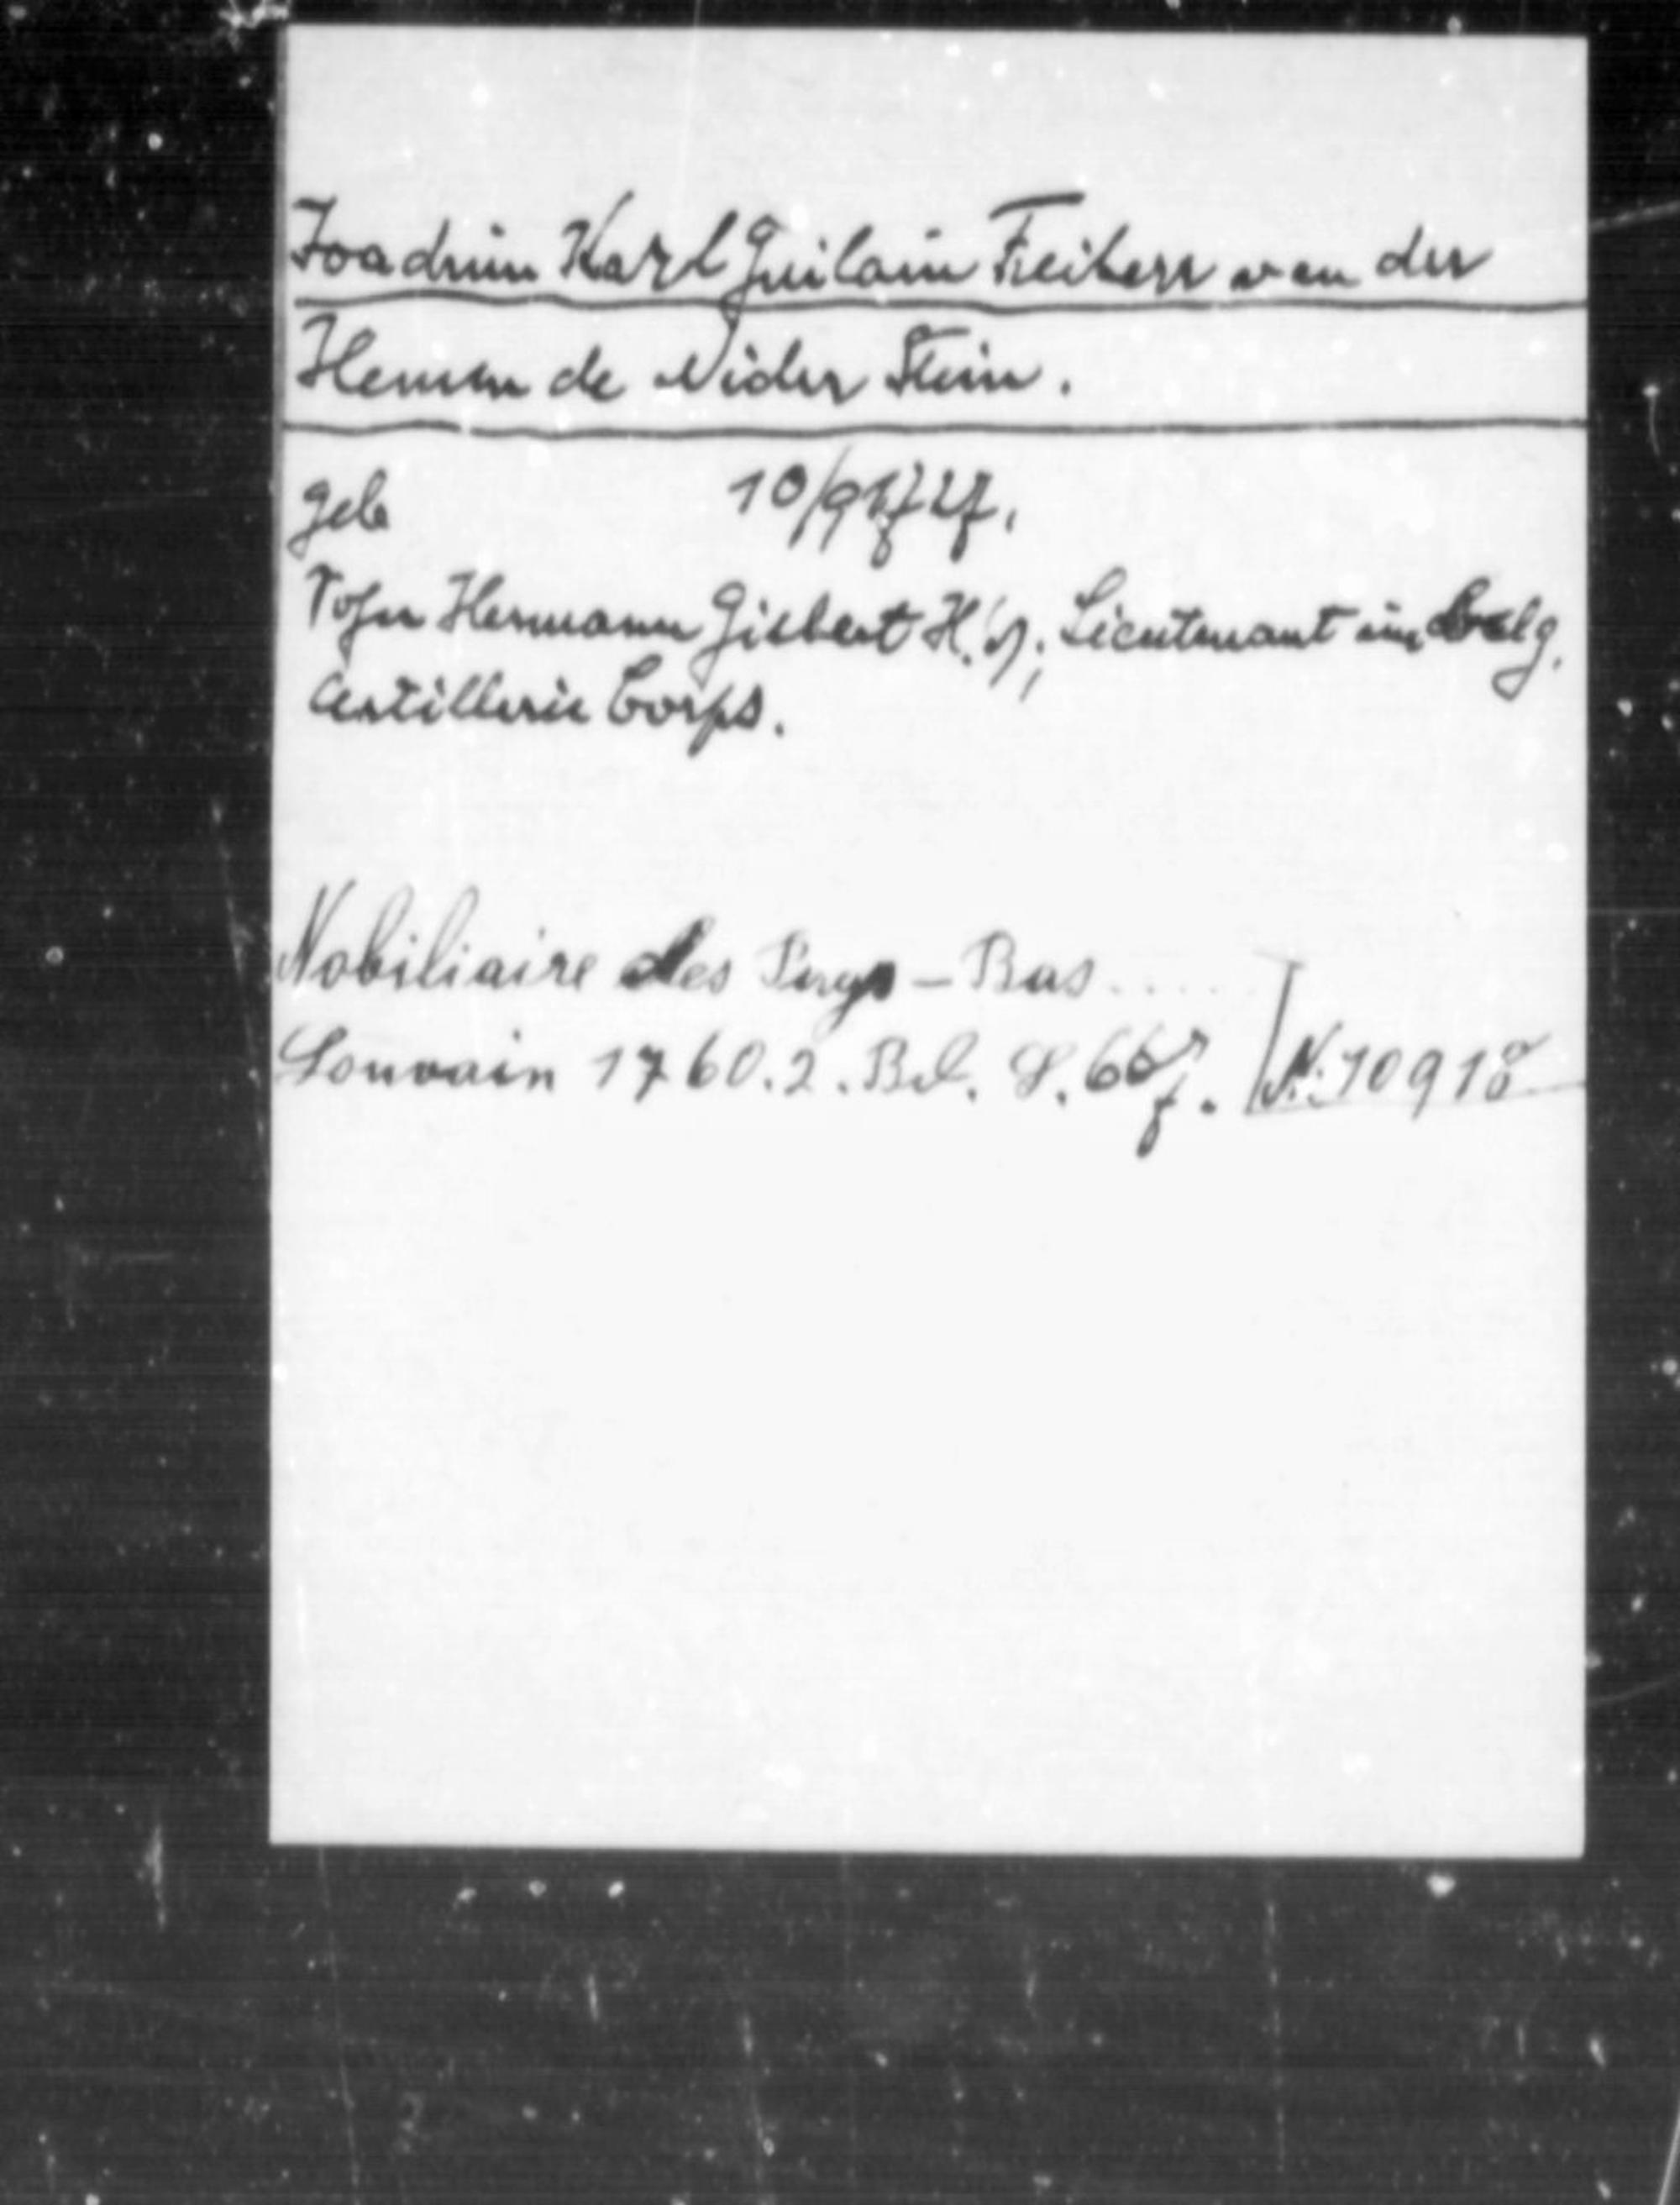 Joachim Karl Guilain Freiherr van der
Hemm de Nider Stein.
geb 10/9 1727.
Sohn Hermann Gisbert H. N; Lieutenant im belg.
Artillerie Corps.
Nobiliaire des Pays-Bas.....
Louvain 1760. 2. Bd. S. 667. N. 10918